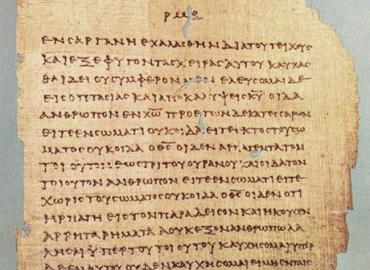 ΕΝ ϹΑΡΓΑΝΗ ΕΧΑΛΑϹΘΗΝ ΔΙΑ ΤΟΥ ΤΕΙΧΟΥϹ
ΚΑΙ ΕΞΕΦΥΓΟΝ ΤΑϹ ΧΕΙΡΑϹ ΑΥΤΟΥ ΚΑΥΧΑϹ
ΘΑΙ ΔΕΙ ΟΥ ϹΥΜΦΕΡΟΝ ΜΕΝ ΕΛΕΥϹΟΜΑΙ ΔΕ
ΕΙϹ ΟΠΤΑϹΙΑϹ ΚΑΙ ΑΠΟΚΑΛΥΨΕΙϹ Κ̅Υ̅ ΟΙΔΑ
ΑΝΘΡΩΠΟΝ ΕΝ Χ̅Ω̅ ΠΡΟ ΕΤΩΝ ΔΕΚΑΤΕϹϹΑΡΩΝ
ΕΙΤΕ ΕΝ ϹΩΜΑΤΙ ΟΥΚ ΟΙΔΑ ΕΙΤΕ ΕΚΤΟϹ ΤΟΥ ϹΩ
ΜΑΤΟϹ ΟΥΚ ΟΙΔΑ Ο Θ̅Ϲ̅ ΟΙΔΕΝ ΑΡΠΑΓΕΝΤΑ ΤΟΝ
ΤΟΙΟΥΤΟΝ ΕΩϹ ΤΡΙΤΟΥ ΟΥΡΑΝΟΥ ΚΑΙ ΟΙΔΑ ΤΟΝ
ΤΟΙΟΥΤΟΝ ΑΝΘΡΩΠΟΝ ΕΙΤΕ ΕΝ ϹΩΜΑΤΙ ΕΙΤΕ
ΧΩΡΙϹ ΤΟΥ ϹΩΜΑΤΟϹ ΟΥΚ ΟΙΔΑ Ο Θ̅Ϲ̅ ΟΙΔΕΝ ΟΤΙ
ΗΡΠΑΓΗ ΕΙϹ ΤΟΝ ΠΑΡΑΔΕΙϹΟΝ ΚΑΙ ΗΚΟΥϹΕΝ
ΑΡΡΗΤΑ ΡΗΜΑΤΑ Α ΟΥΚ ΕΞΟΝ ΑΝΘΡΩΠΩ ΛΑ
ΛΗϹΑΙ ΥΠΕΡ ΤΟΥ ΤΟΙΟΥΤΟΥ ΚΑΥΧΗϹΟΜΑΙ ΥΠΕΡ
ΟΥΔΕΝ ΚΑΥΧΗϹΟΜΑΙ